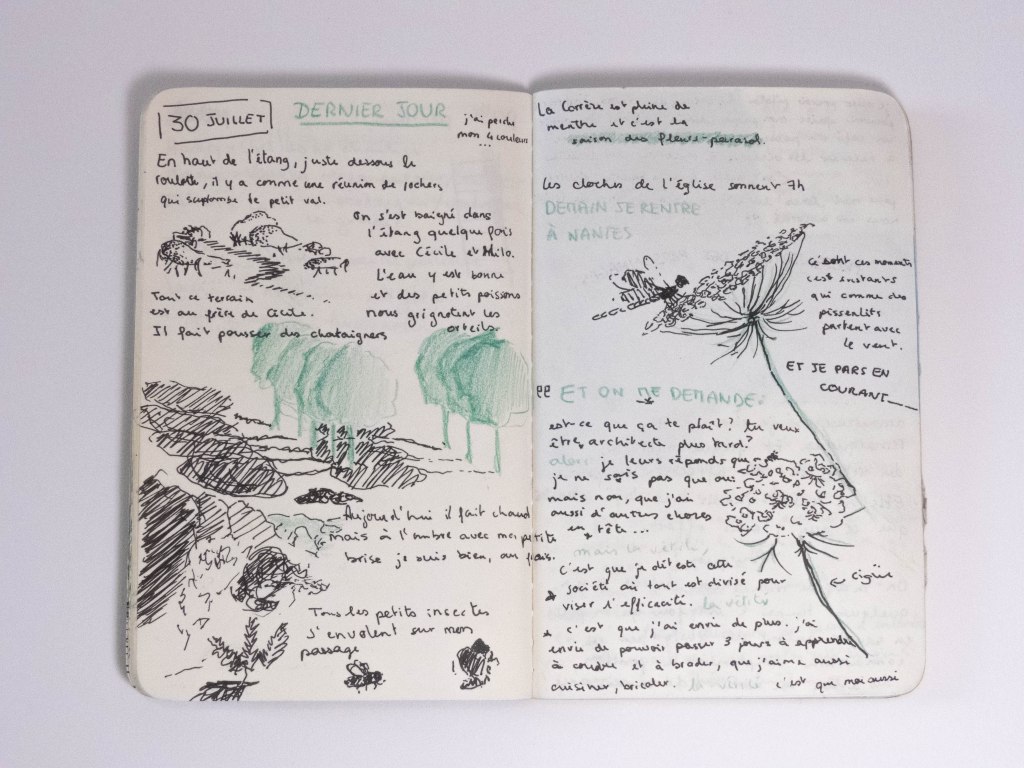 30 JUILLET
DERNIER JOUR
j'ai perdu
mon 4 couleurs
...
En haut de l'étang, juste dessous la
roulotte, il y a comme une réunion de rochers
qui surplombe le petit val.
On s'est baigné dans
l'étang quelque fois
avec Cécile et Milo.
L'eau y est bonne
et des petits poissons
nous grignotent les
orteils.
Tout ce terrain
est au frère de Cécile.
Il fait pousser des chataigners
Aujourd'hui il fait chaud
mais à l'ombre avec ma petite
brise je suis bien, au frais.
Tous les petits insectes
s'envolent sur mon
passage
La Corrèze est pleine de
menthe et c'est la
saison des fleurs-parasol.
Les cloches de l'Église sonnent 7h
DEMAIN JE RENTRE
À NANTES
Ce sont ces moments
c'est instants
qui comme des
pissenlits
partent avec
le vent.
ET JE PARS EN
COURANT
ET ON ME DEMANDE:
est-ce que ça te plaît? tu veux
être architecte plus tard?
alors je leurs réponds que
je ne sais pas que oui
mais non, que j'ai
aussi d'autres choses
en tête...
mais la vérité,
c'est que je déteste cette
société où tout est divisé pour
viser l'efficacité. la vérité
c'est que j'ai envie de plus. j'ai
envie de pouvoir passer 3 jours à apprendre
à coudre et à broder, que j'aime aussi
cuisiner, bricoler. la vérité c'est que moi aussi
Cigüe